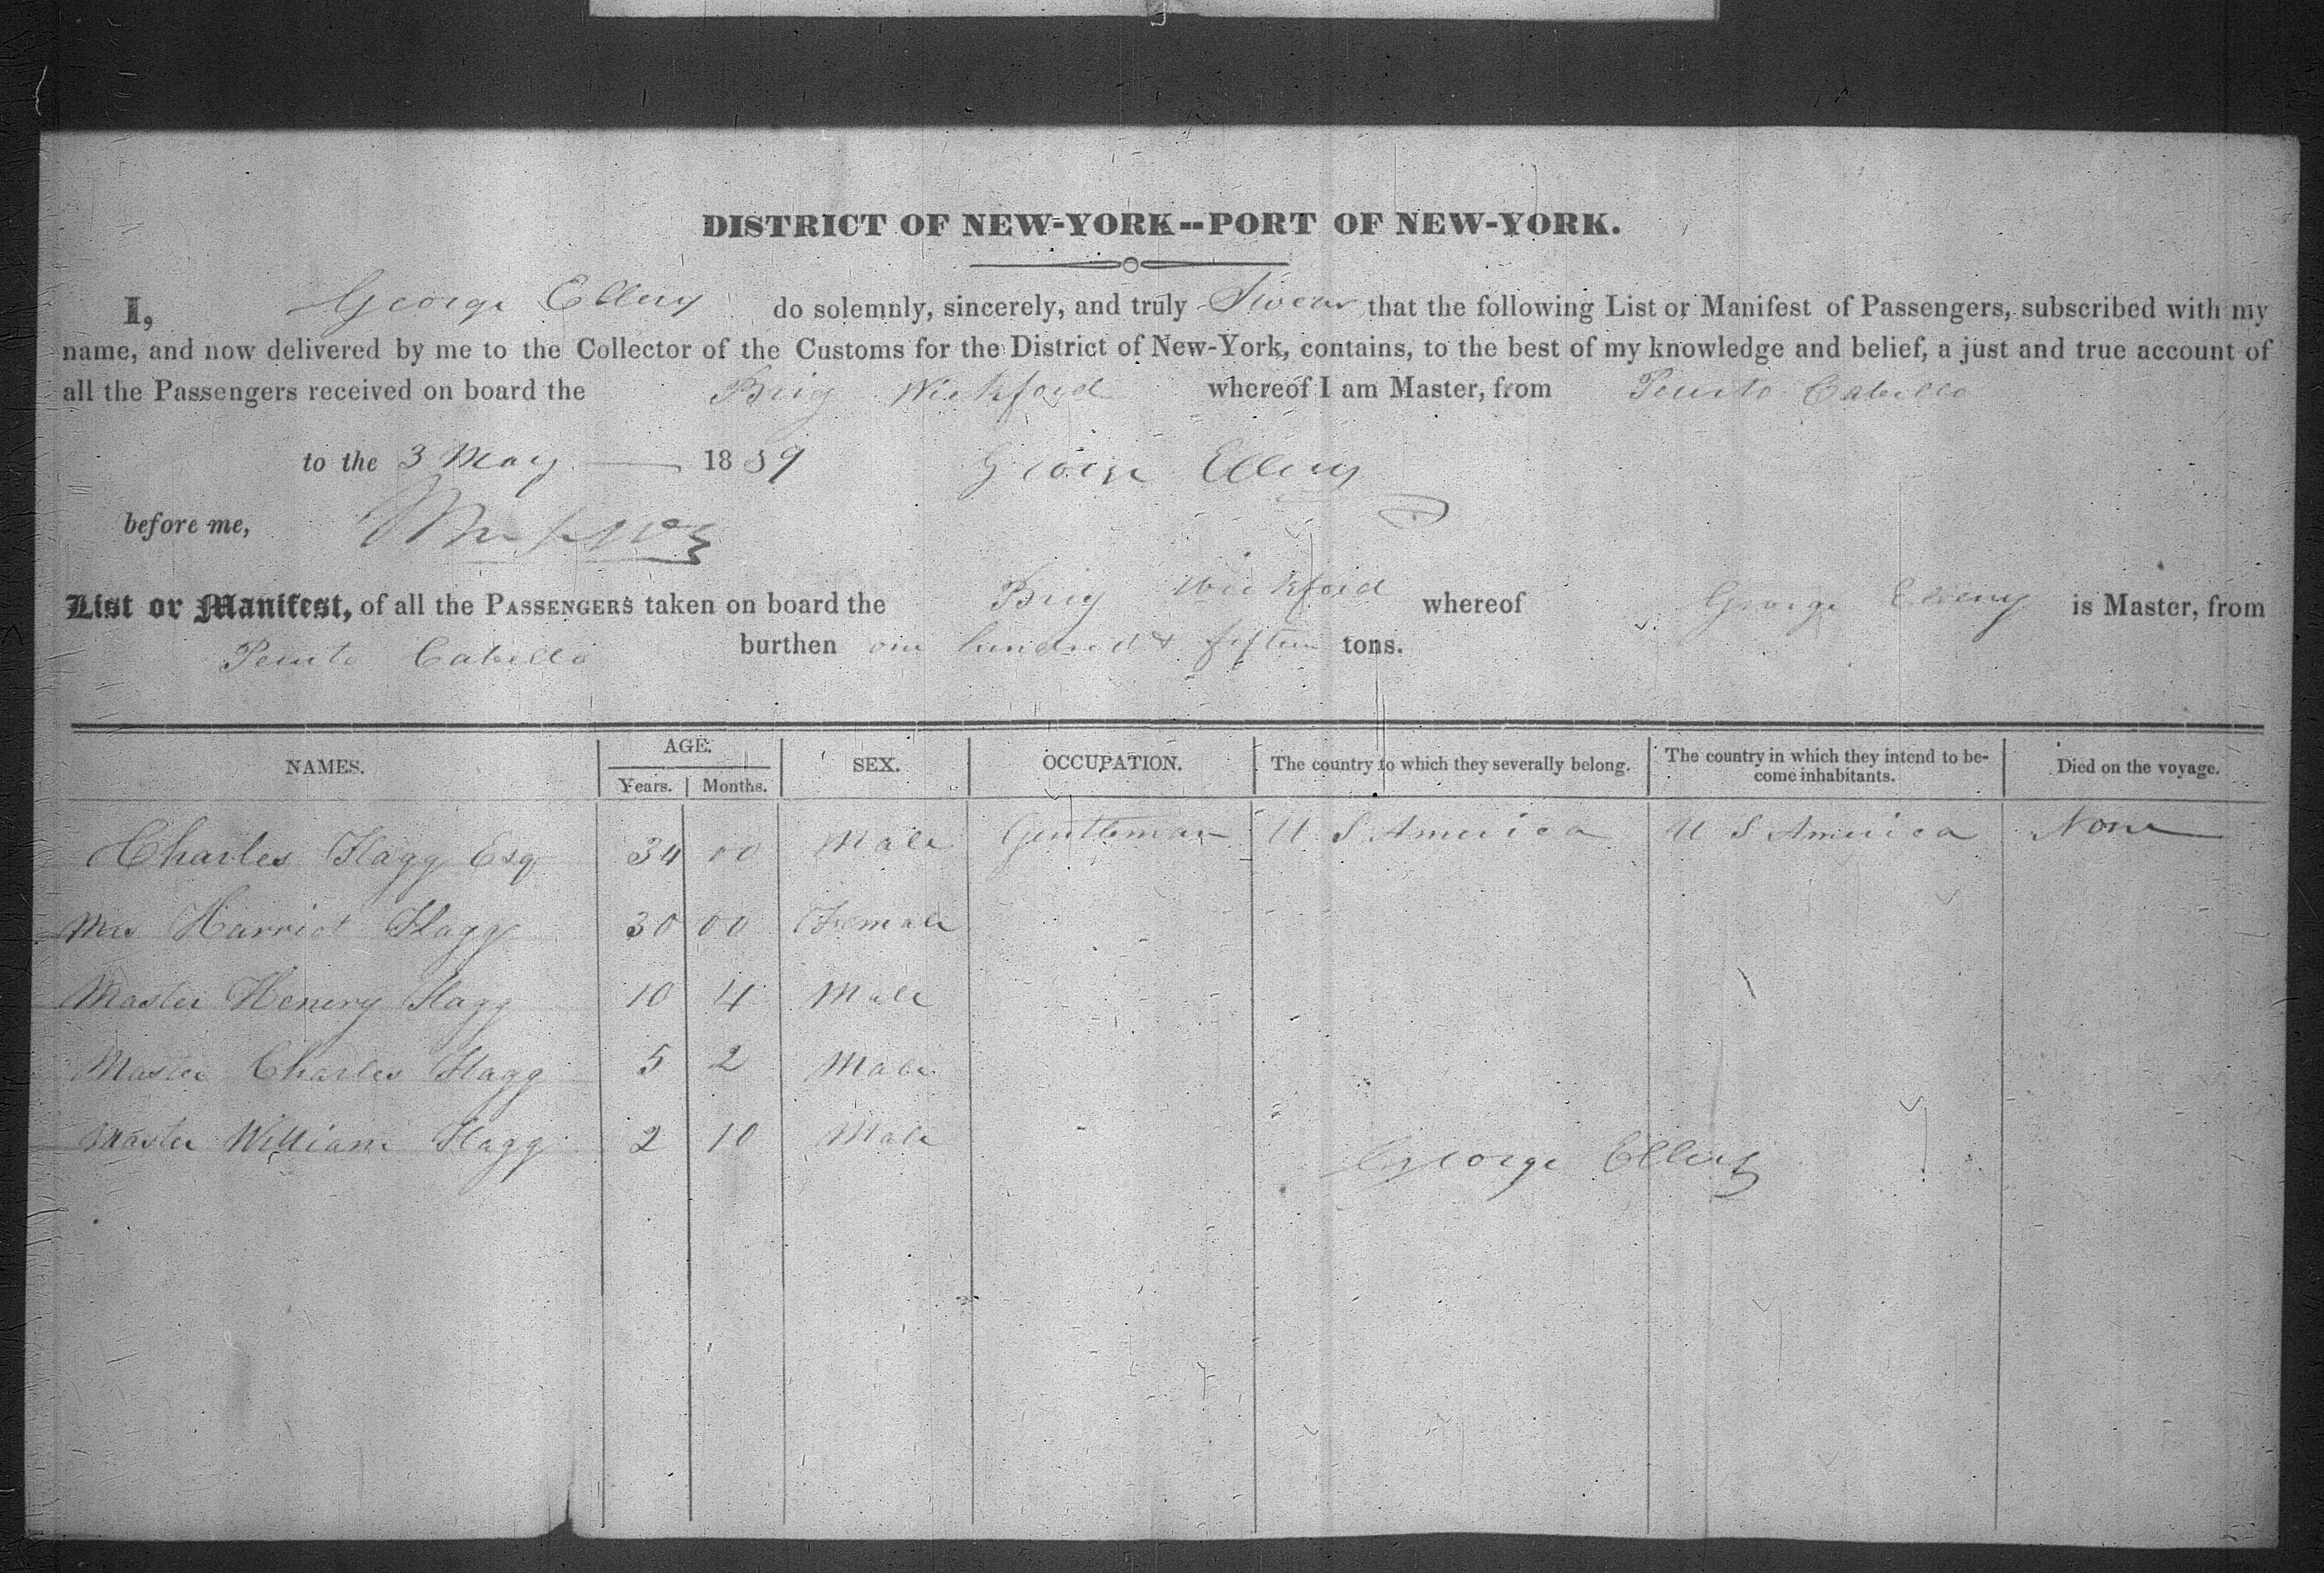 DISTRICT OF NEW-YORK--PORT OF NEW-YORK.
I, George Ellery do solemnly, sincerely, and truly Swear that the following List or Manifest of Passengers, subscribed with my
name, and now delivered by me to the Collector of the Customs for the District of New-York, contains, to the best of my knowledge and belief, a just and true account of
all the Passengers received on board the Brig Wickford whereof I am Master, from Pourto Cabello
to the 3 May 1839 George Ellery
before me,
List or Manifest, of all the PASSENGERS taken on board the Brig Wickford whereof George Ellery is Master, from
Pourto Cabello burthen one hundred & fifteen tons.
NAMES. AGE. SEX. OCCUPATION. The country to which they severally belong. The country in which they intend to be- Died on the voyage.
Years. Months. come inhabitants.
Charles Flagg Esq 34 00 Male Gentleman U S America U S America None
Mrs Harriet Flagg 30 00 Female
Master Henery Flagg 10 4 Male
Master Charles Flagg 5 2 Male
Master William Flagg 2 10 Male
George Ellery